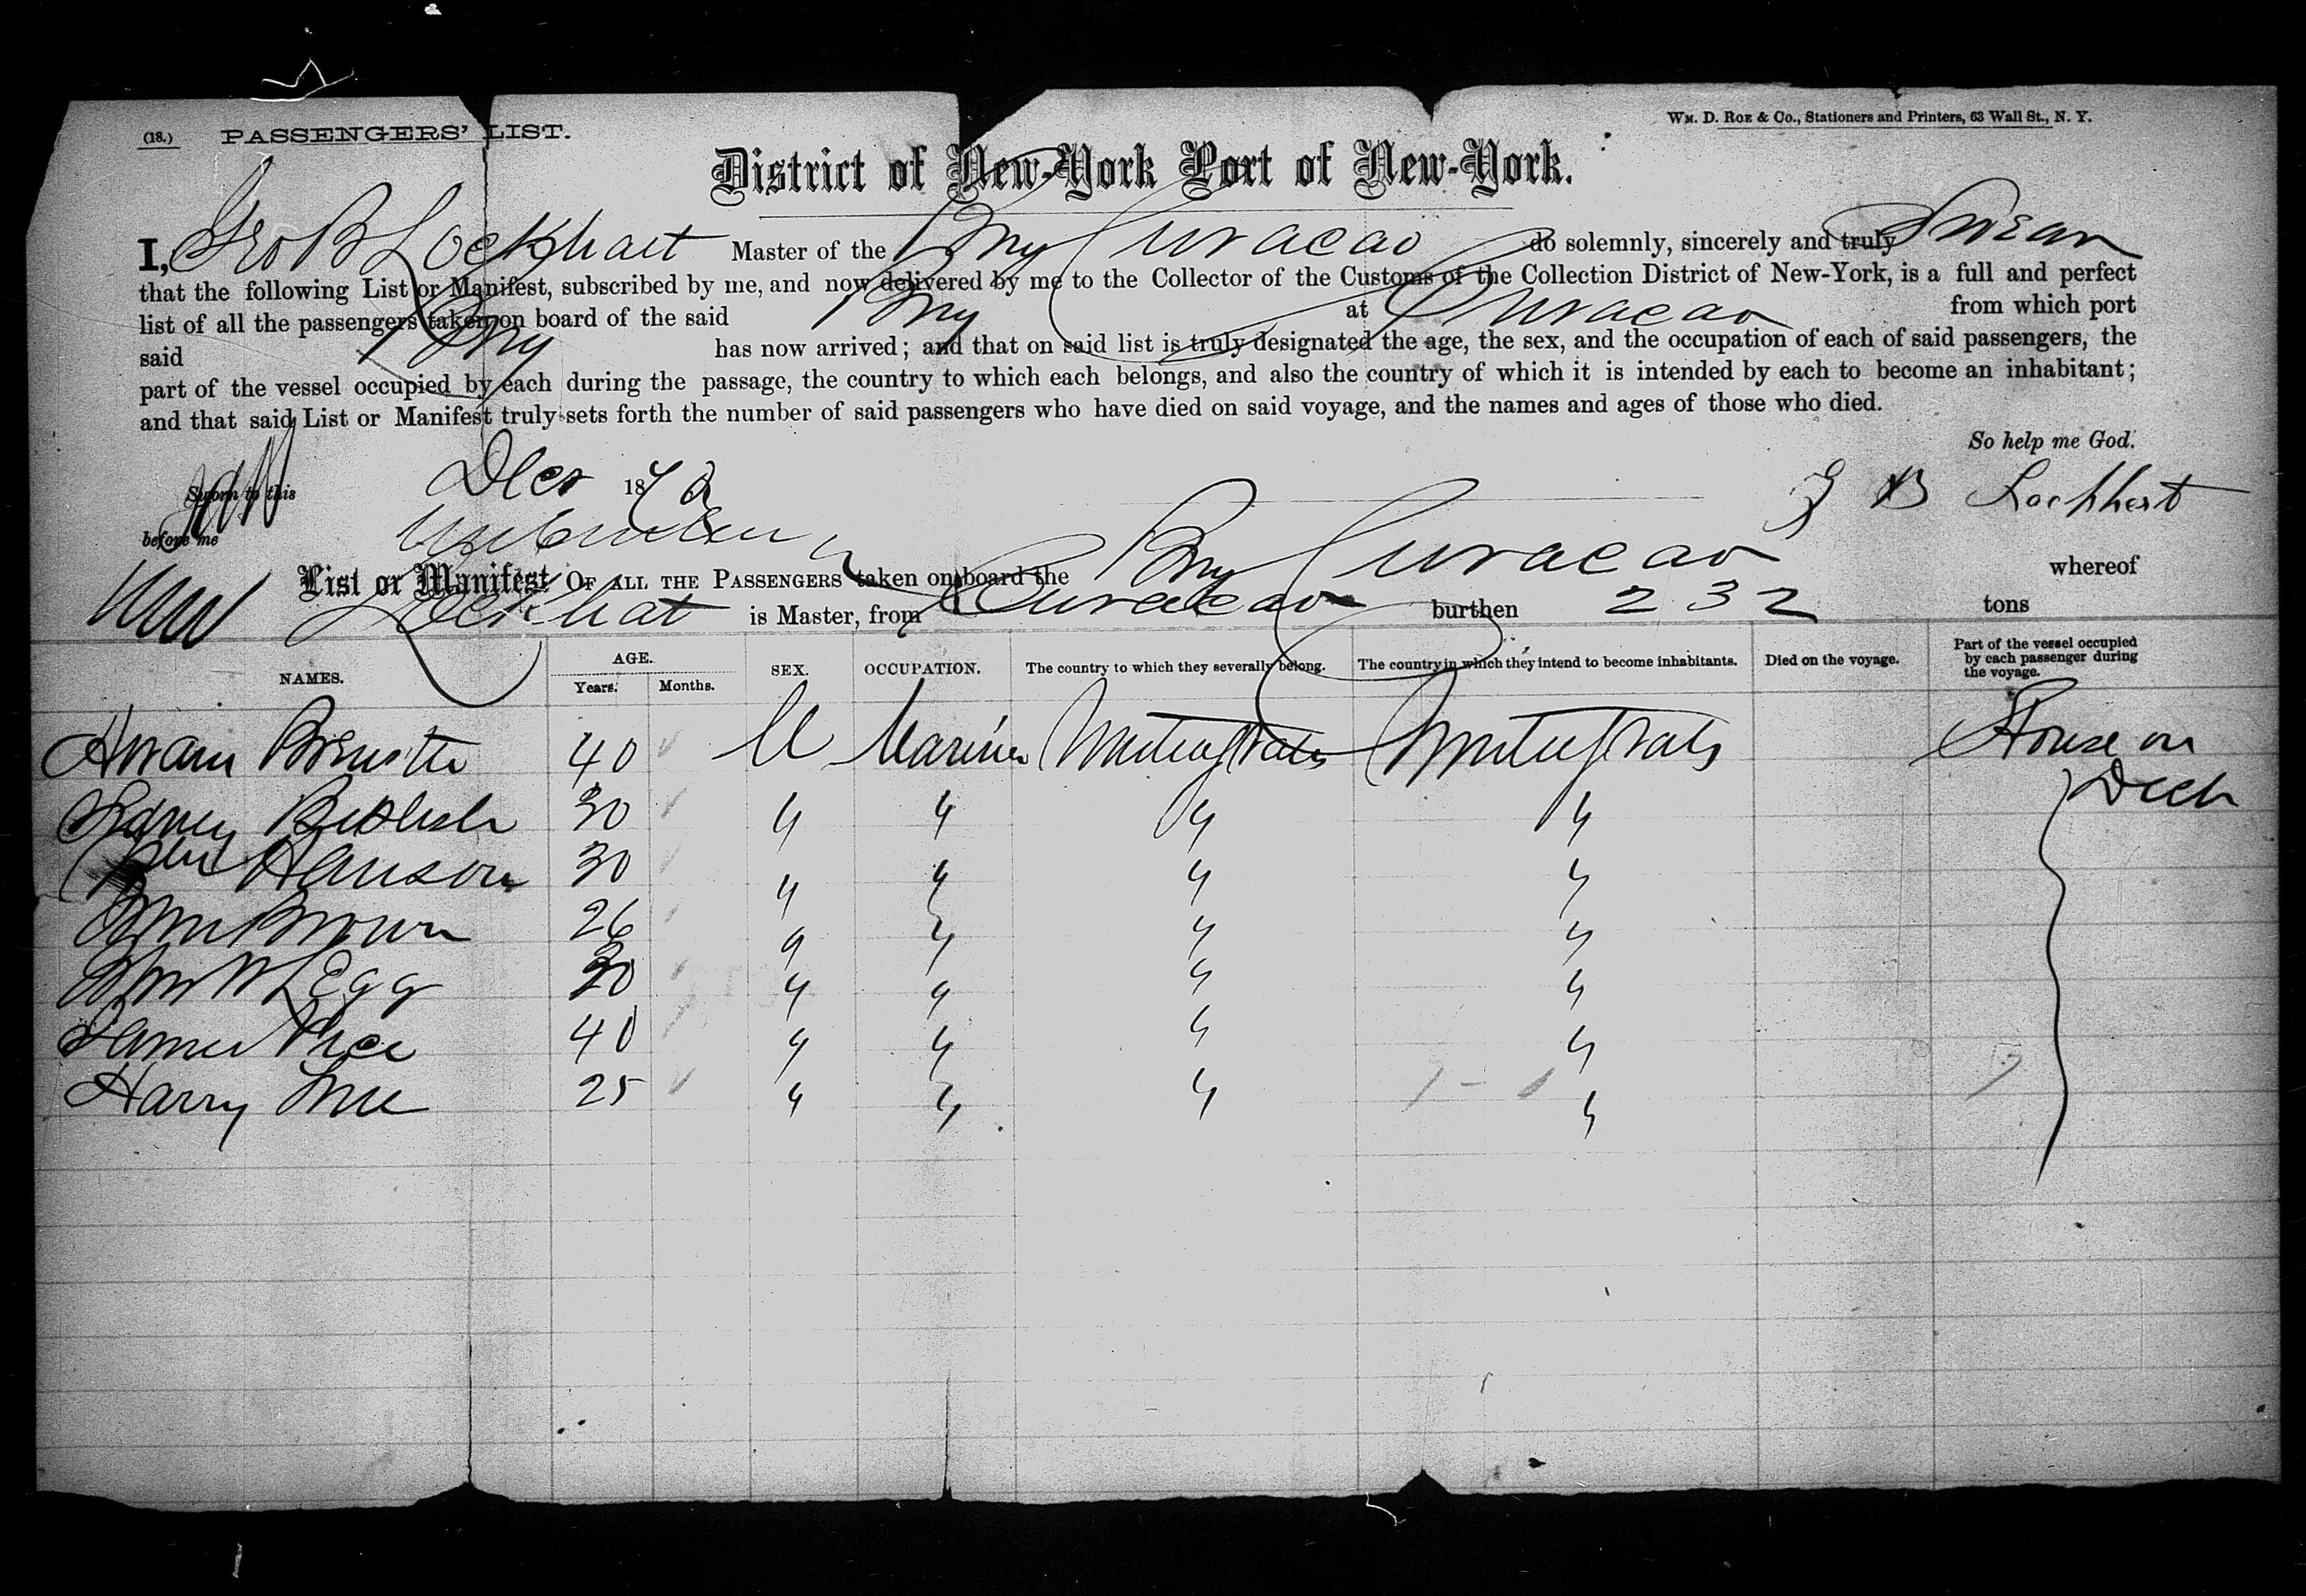 (18.) PASSENGERS' LIST.
WM. D. ROE & Co., Stationers and Printers, 63 Wall St., N. Y.
District of New-York Port of New-York.
I, Geo B Lockhart Master of the Brig Curacao do solemnly, sincerely and truly Swear
that the following List or Manifest, subscribed by me, and now delivered by me to the Collector of the Customs of the Collection District of New-York, is a full and perfect
list of all the passengers taken on board of the said Brig at Curacao from which port
said Brig has now arrived; and that on said list is truly designated the age, the sex, and the occupation of each of said passengers, the
part of the vessel occupied by each during the passage, the country to which each belongs, and also the country of which it is intended by each to become an inhabitant;
and that said List or Manifest truly sets forth the number of said passengers who have died on said voyage, and the names and ages of those who died.
So help me God.
Sworn to this Dec 187 G B Lockhart
before me
List or Manifest OF ALL THE PASSENGERS taken on board the Brig Curacao whereof
Lockhart is Master, from Curacao burthen 232 tons
NAMES. AGE. Years. Months. SEX. OCCUPATION. The country to which they severally belong. The country in which they intend to become inhabitants. Died on the voyage. Part of the vessel occupied by each passenger during the voyage.
40 M Mariner United States United States House on Deck
Sidney 30 " " " "
Hanson 30 " " " "
Wm Brown 26 " " " "
Wm W Legg 30 " " " "
James Price 40 " " " "
Harry 25 " " " "